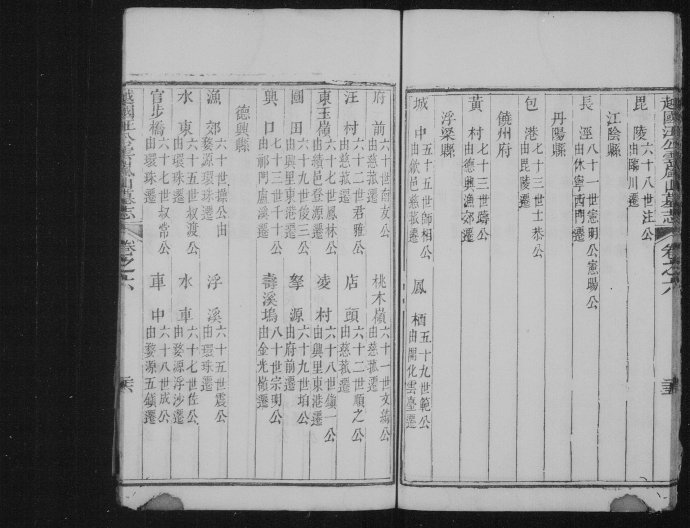 越國汪公雲嵐山墓志 卷之六
毘陵 六十八世注公 由臨川遷
江陰縣
長涇 八十一世憲明公憲暘公 由休寧西門遷
丹陽縣
包港 七十三世士恭公 由毘陵遷
饒州府
黃村 七十三世疇公 由德興漁郊遷
浮梁縣
城中 五十五世師相公 由歙邑慈菰遷 鳳栖 五十九世範公 由開化雲臺遷
府前 六十世府友公 由慈菰遷 桃木嶺 六十一世文諭公 由慈菰遷
汪村 六十二世君雅公 由慈菰遷 店頭 六十二世順之公 由慈菰遷
東玉嶺 六十七世鳳林公 由績邑登源遷 凌村 六十八世嶺一公 由興里東港遷
國田 六十九世俊三公 由興里東港遷 拏源 六十九世垍公 由府前遷
興口 七十三世千十公 由祁門盧溪遷 壽溪塢 八十世宗明公 由金光墩遷
德興縣
漁郊 六十世操公 由婺源環珠遷 浮溪 六十五世震公 由環珠遷
水東 六十五世叔渡公 由環珠遷 水車 六十七世佐公 由婺源浮沙遷
官步橋 六十七世叔常公 由環珠遷 車中 六十八世成公 由婺源五嶺遷
越國汪公雲嵐山墓志 卷之六